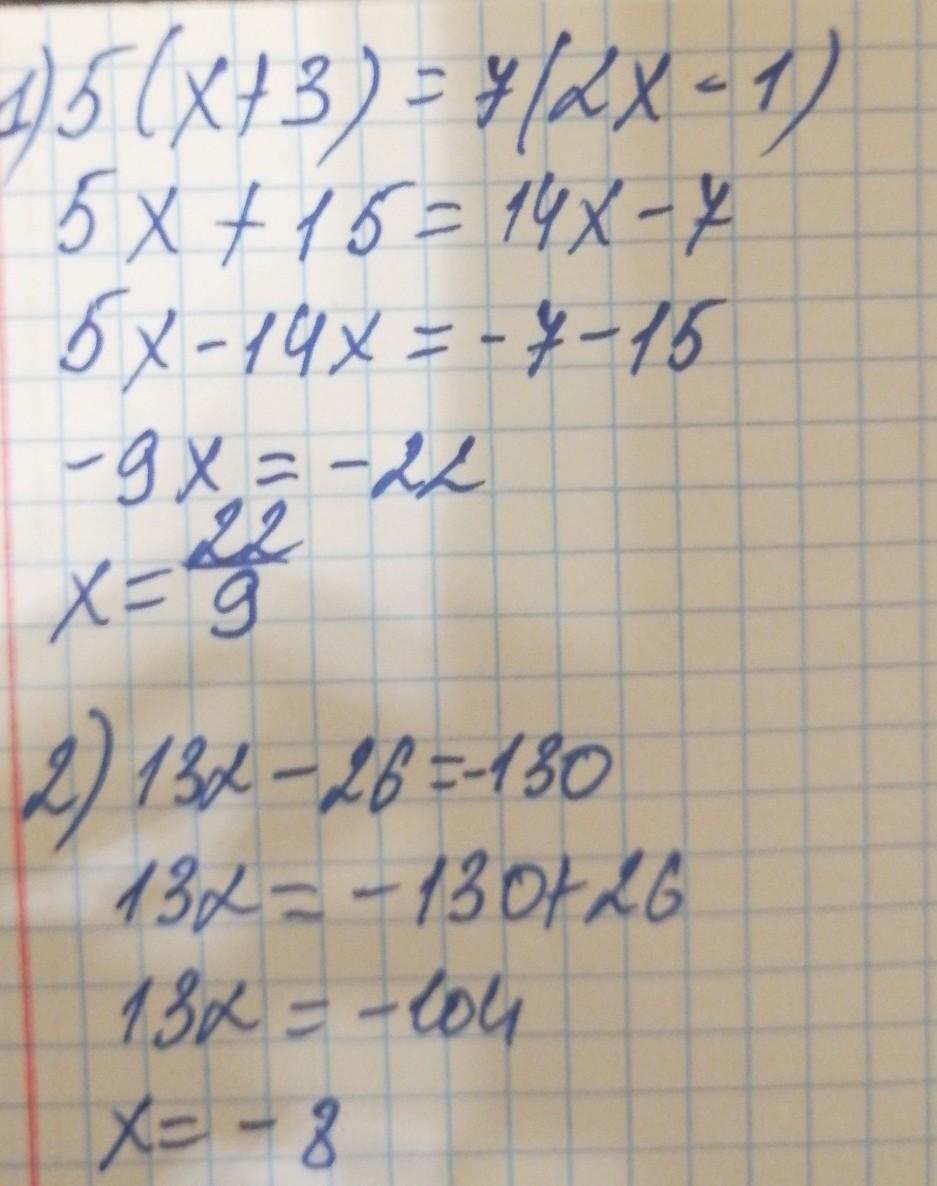 1) 5(x+3)=7(2x-1)
5x+15=14x-7
5x-14x=-7-15
-9x=-22
x=22/9
2) 13x-26=-130
13x=-130+26
13x=-104
x=-8